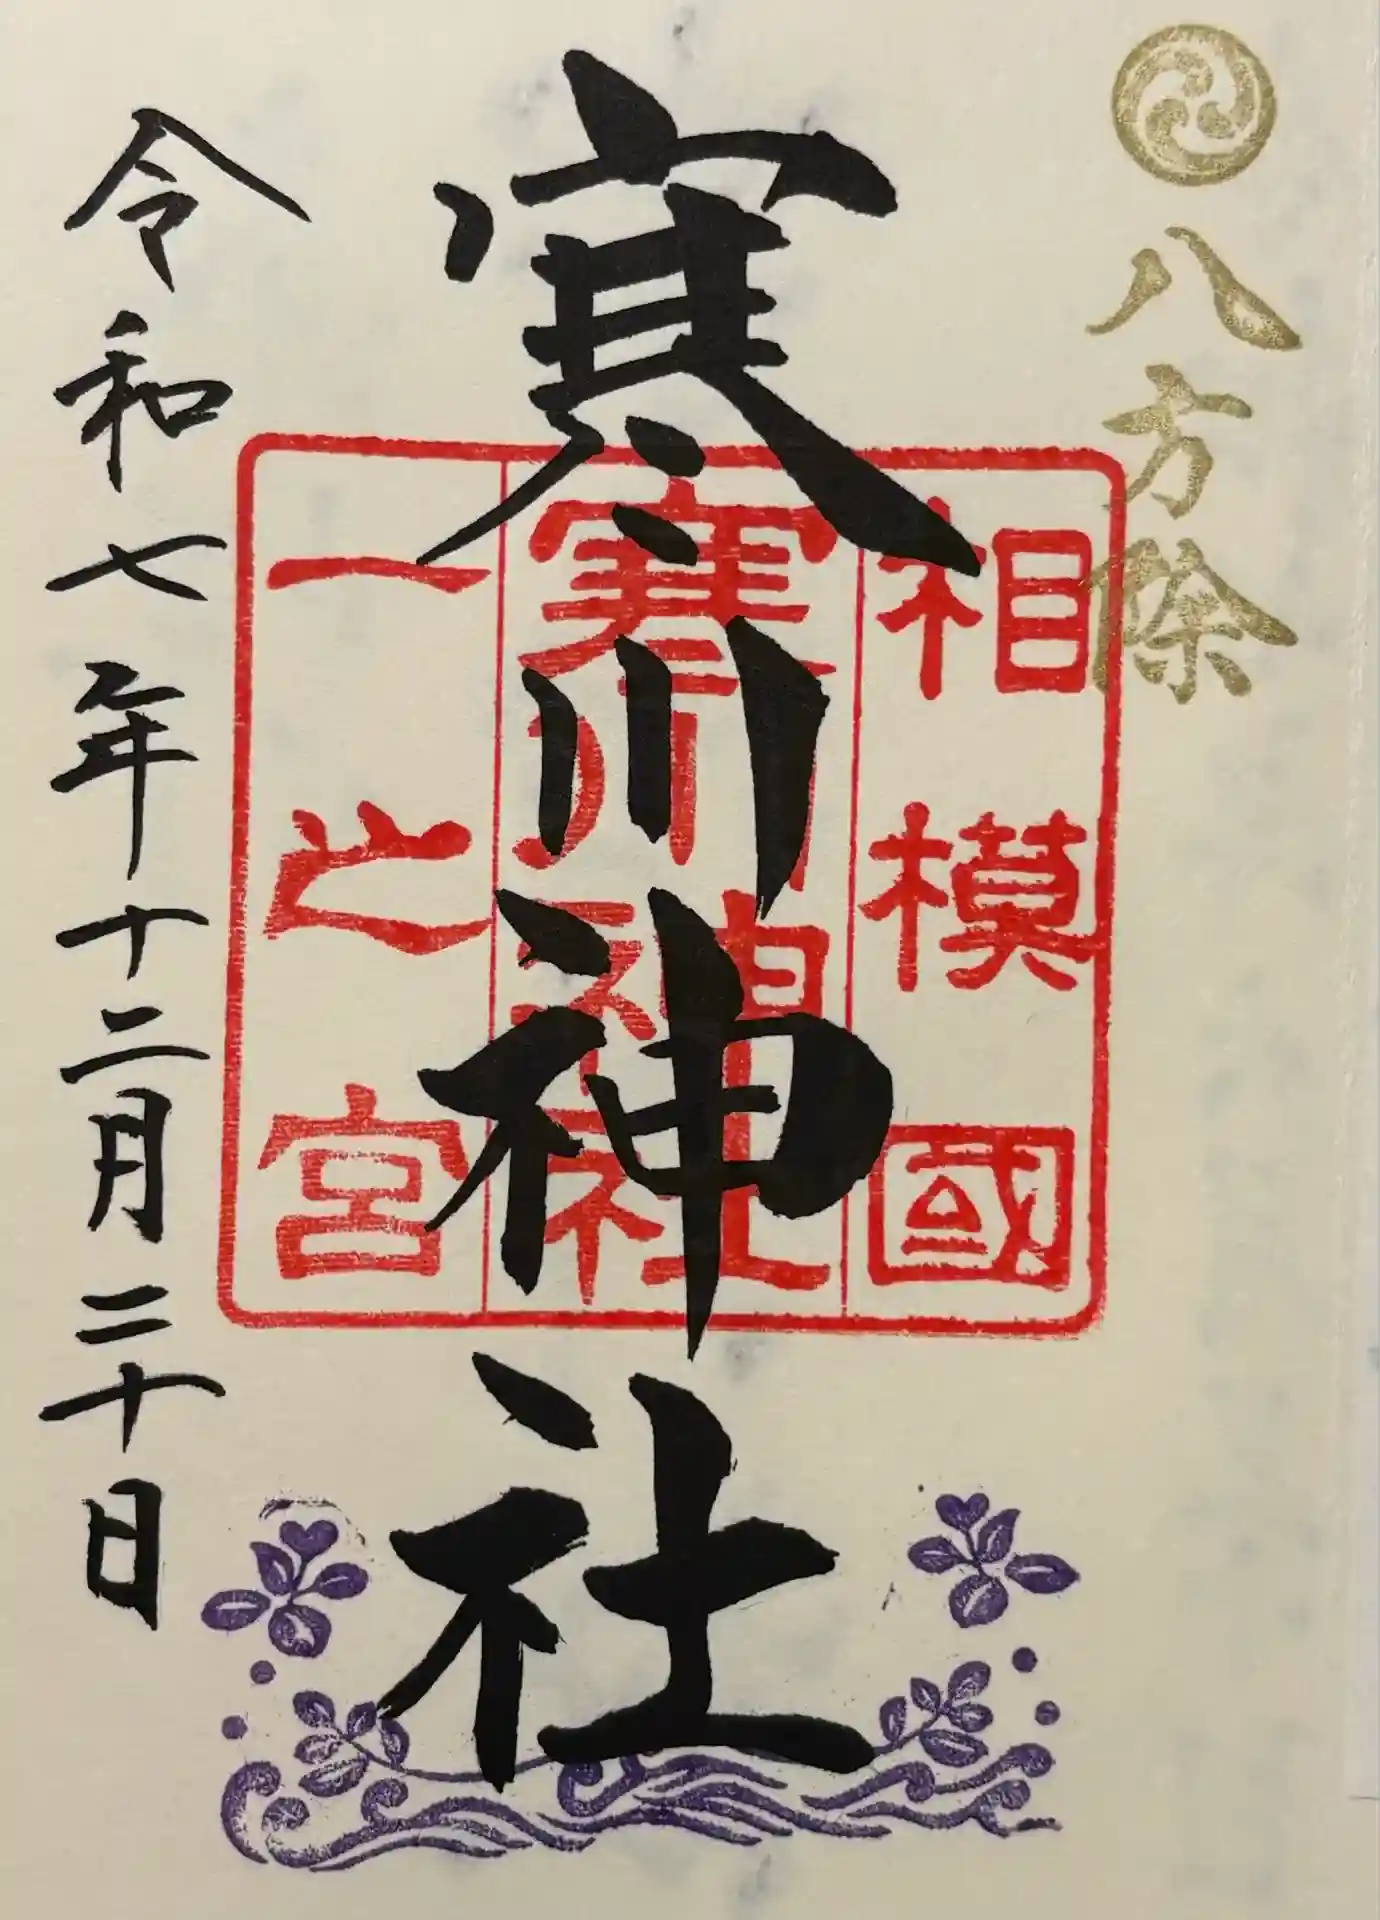 八方除
寒川神社
相模國
寒川神社
一之宮
令和七年十二月二十日